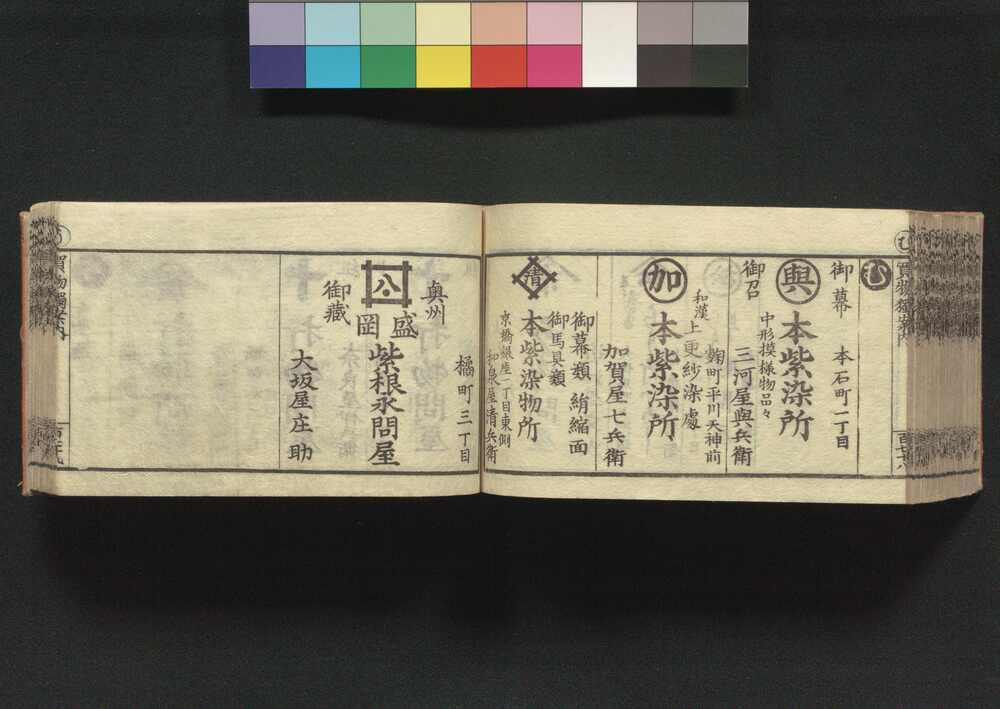 む
御幕
本石町一丁目
與
本紫染所
中形摸様物品々
御召
三河屋與兵衛
麹町平川天神前
和漢上更紗染處
加
本紫染所
加賀屋七兵衛
御幕類
絹縮面
御馬具類
清
本紫染物所
京橋銀座二丁目東側
清兵衛
橘町三丁目
奥州
盛
岡
紫根永問屋
御藏
大坂屋庄助
買物獨案内